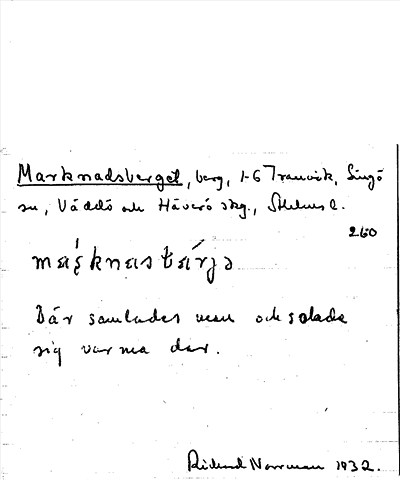 Marknadsberget, berg, 1-6 Tranvik, Singö
sn, Väddö och Häverö skg., Sthlms l.
260
Där samlades man och solade
sig varma dar.
Rickard Norrman 1932.